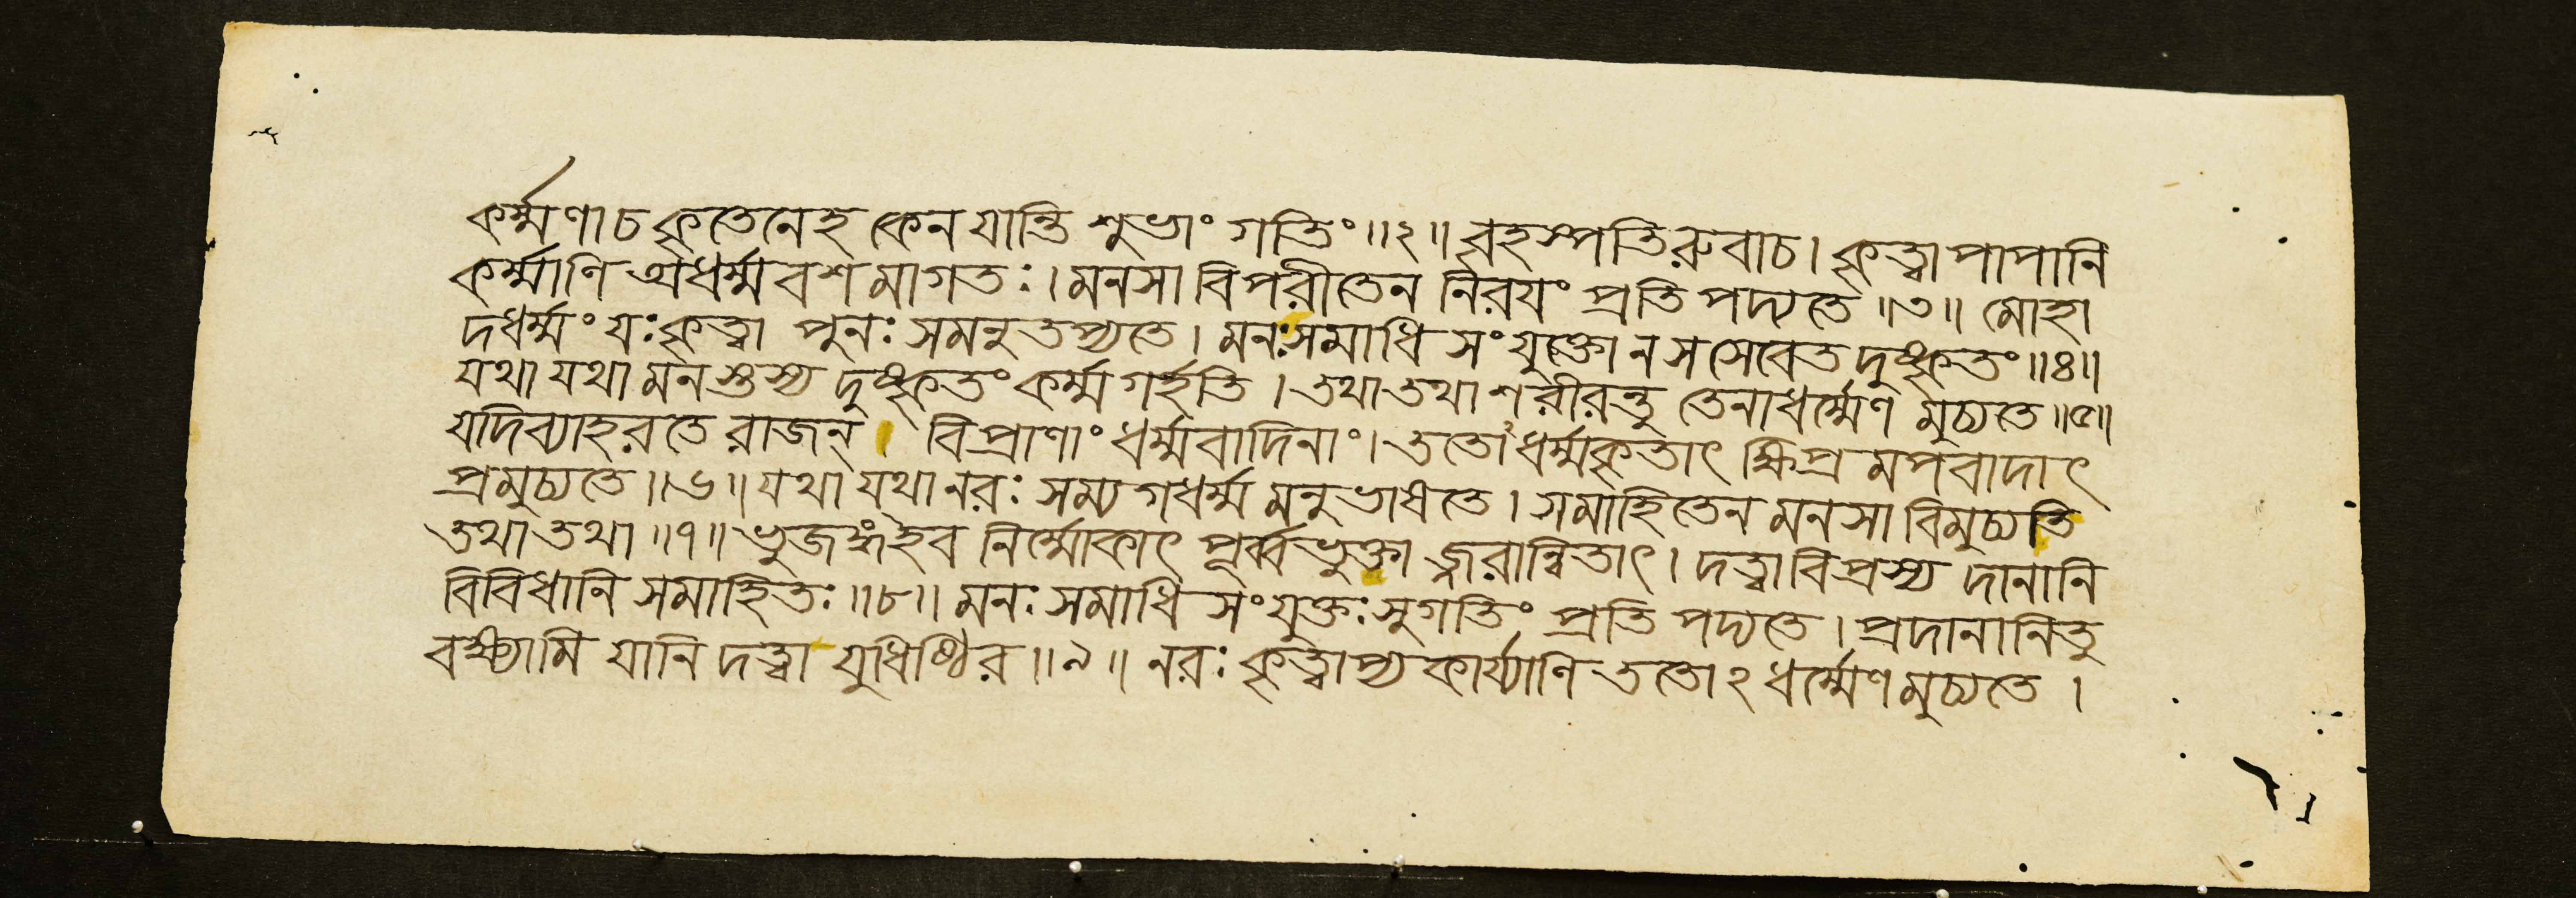 কর্ম্মণাচ কৃতেনেহ কেন যান্তি শুভাং গতিং॥২॥ বৃহস্পতিরুবাচ। কৃত্বা পাপানি
কর্ম্মাণি অধর্ম্মবশমাগতঃ। মনসা বিপরীতেন নিরয়ং প্রতিপদ্যতে॥৩॥ মোহা
দধর্ম্মং যঃ কৃত্বা পুনঃ সমনুতপ্যতে। মনঃসমাধি সংযুক্তো ন স সেবেত দুষ্কৃতং॥৪॥
যথা যথা মনস্তস্য দুষ্কৃতং কর্ম্ম গর্হতি। তথা তথা শরীরন্তু তেনাধর্ম্মেণ মুচ্যতে॥৫॥
যদি ব্যাহরতে রাজন্। বিপ্রাণাং ধর্ম্মবাদিনাং। ততোধর্ম্মকৃতাৎ ক্ষিপ্রমপবাদাৎ
প্রমুচ্যতে॥৬॥ যথা যথা নরঃ সম্যগধর্ম্ম মনুভাষতে। সমাহিতেন মনসা বিমুচ্যতি
তথা তথা॥৭॥ ভুজঙ্গইব নির্ম্মোকাৎ পূর্ব্বভুক্তাজ্জরান্বিতাৎ। দত্ত্বা বিপ্রস্য দানানি
বিবিধানি সমাহিতঃ॥৮॥ মনঃ সমাধি সংযুক্তঃ সুগতিং প্রতিপদ্যতে। প্রদানানিতু
বক্ষ্যামি যানি দত্ত্বা যুধিষ্ঠির॥৯॥ নরঃ কৃত্বাপ্য কার্য্যাণি ততোঽধর্ম্মেণ মুচ্যতে।